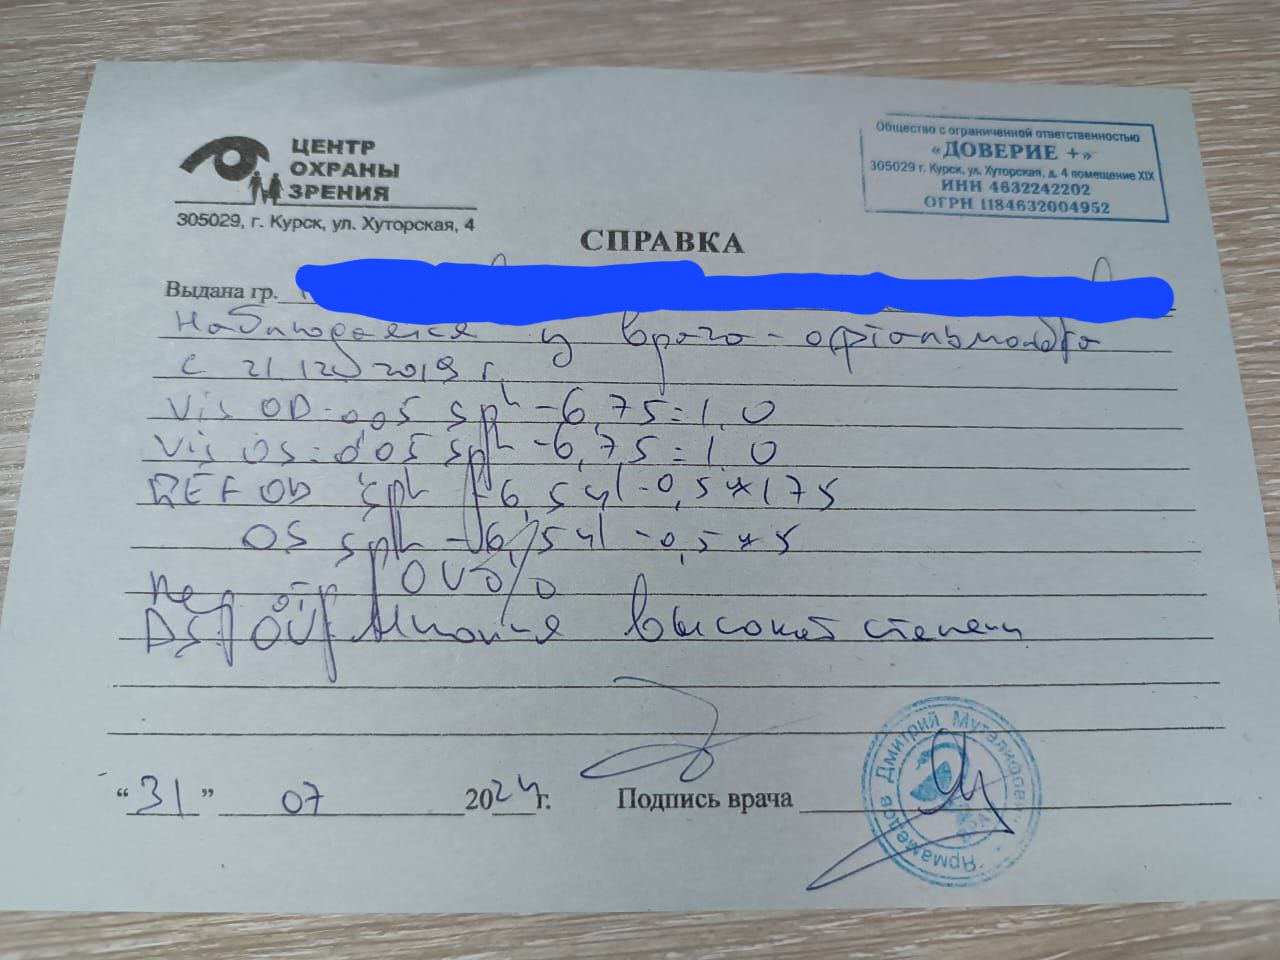 ЦЕНТР
ОХРАНЫ
ЗРЕНИЯ
305029, г. Курск, ул. Хуторская, 4
Общество с ограниченной ответственностью
«ДОВЕРИЕ +»
305029 г. Курск, ул. Хуторская, д. 4 помещение XIX
ИНН 4632242202
ОГРН 1184632004952
СПРАВКА
Выдана гр.
Наблюдается у врача-офтальмолога
с 21.12.2019 г.
Vis OD=0,05 sph -6,75=1,0
Vis OS=0,05 sph -6,75=1,0
REF OD sph -6,5 cyl -0,5 x 175
OS sph -6,5 cyl -0,5 x 5
OU
DS: OU Миопия высокой степени
"31" 07 2024г. Подпись врача
Ярмамедов Дмитрий Муталифович